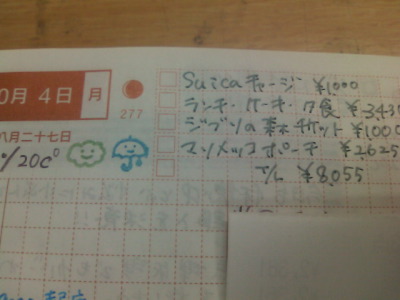 0月 4日 月
277
八月二十七日
°/20C°
Suicaチャージ ¥1000
ランチ・ケーキ・夕食 ¥3430
ジブリの森チケット ¥1000
マリメッコポーチ ¥2,625
T/L ¥8,055